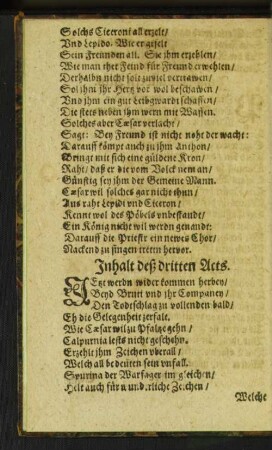 Solchs Ciceroni all erzelt/
Vnd Lepido. Wie er itzt
Sein Freunden all. Sie jhm erzehlen/
Wie man jhet Feind für Freund erwehlen/
Derhalbn nicht solt zuviel vertrawen/
Sol jhm jhr Hertz vor wol beschawen/
Vnd jhm ein gut Leibgwardi schaffen/
Die stets neben jhm wern mit Waffen.
Solches aber Cæsar verlacht/
Sagt: Bey Freund ist nicht noht der wacht:
Darauff kömpt auch zu jhm Anthon/
Bringt mit sich eine güldine Kron/
Raht/ daß er die vom Volck nem an/
Günstig sey jhm der Gemeine Mann.
Cæsar wil solches gar nicht thun/
Aus raht Lepidi vnd Ciceron/
Kennt wol des Pöbels vnbestandt/
Ein König nicht wil werden genandt:
Darauff die Priester ein newes Chor/
Nackend zu singen tretten hervor.
Inhalt deß dritten Acts.
JEtzt werdn wider kommen herbey/
Beyd Bruti vnd jhr Companey/
Den Todtschlag zu vollenden bald/
Eh die Gelegenheit zerfalt.
Wie Cæsar wil zu Pfaltze gehn/
Calpurnia lests nicht geschehn.
Erzehlt jhm Zeichen vberall/
Welch all bedeuten sein vnfall.
Spurina der Warsager im gleichen/
Helt auch für wunderliche Zeichen/
Welche